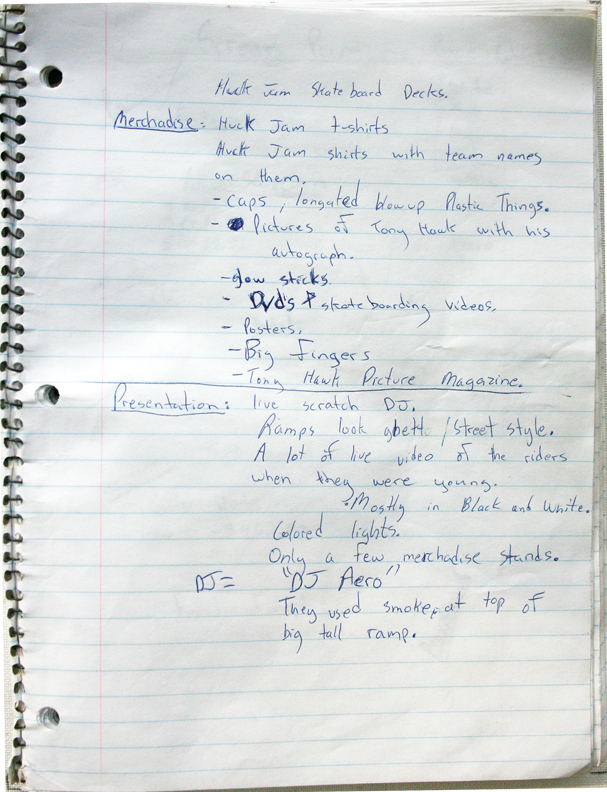 Huck Jam Skate board Decks.
Merchadise: Huck Jam t-shirts
Huck Jam shirts with team names
on them.
- Caps, longated blow up Plastic Things.
- Pictures of Tony Hawk with his
autograph.
- glow sticks.
- DVd's skate boarding videos.
- Posters.
- Big fingers
- Tony Hawk Picture Magazine.
Presentation: live scratch DJ.
Ramps look ghett. / street style.
A lot of live video of the riders
when they were young.
Mostly in Black and White.
Colored lights.
Only a few merchadise stands.
DJ = "DJ Aero"
They used smoke at top of
big tall ramp.